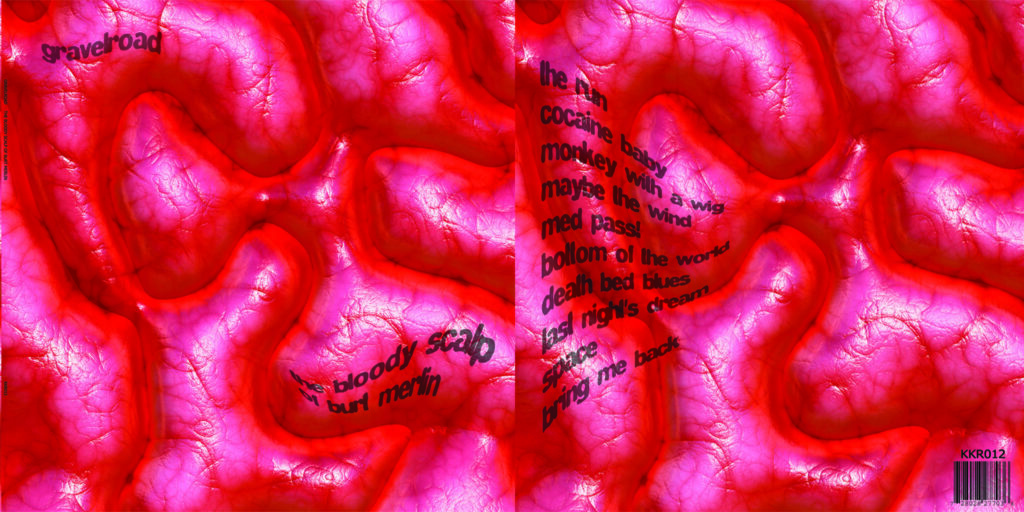 gravelroad
the bloody scalp
of burl merlin
the run
cocaine baby
monkey with a wig
maybe the wind
med pass!
bottom of the world
death bed blues
last night's dream
space
bring me back
KKR012